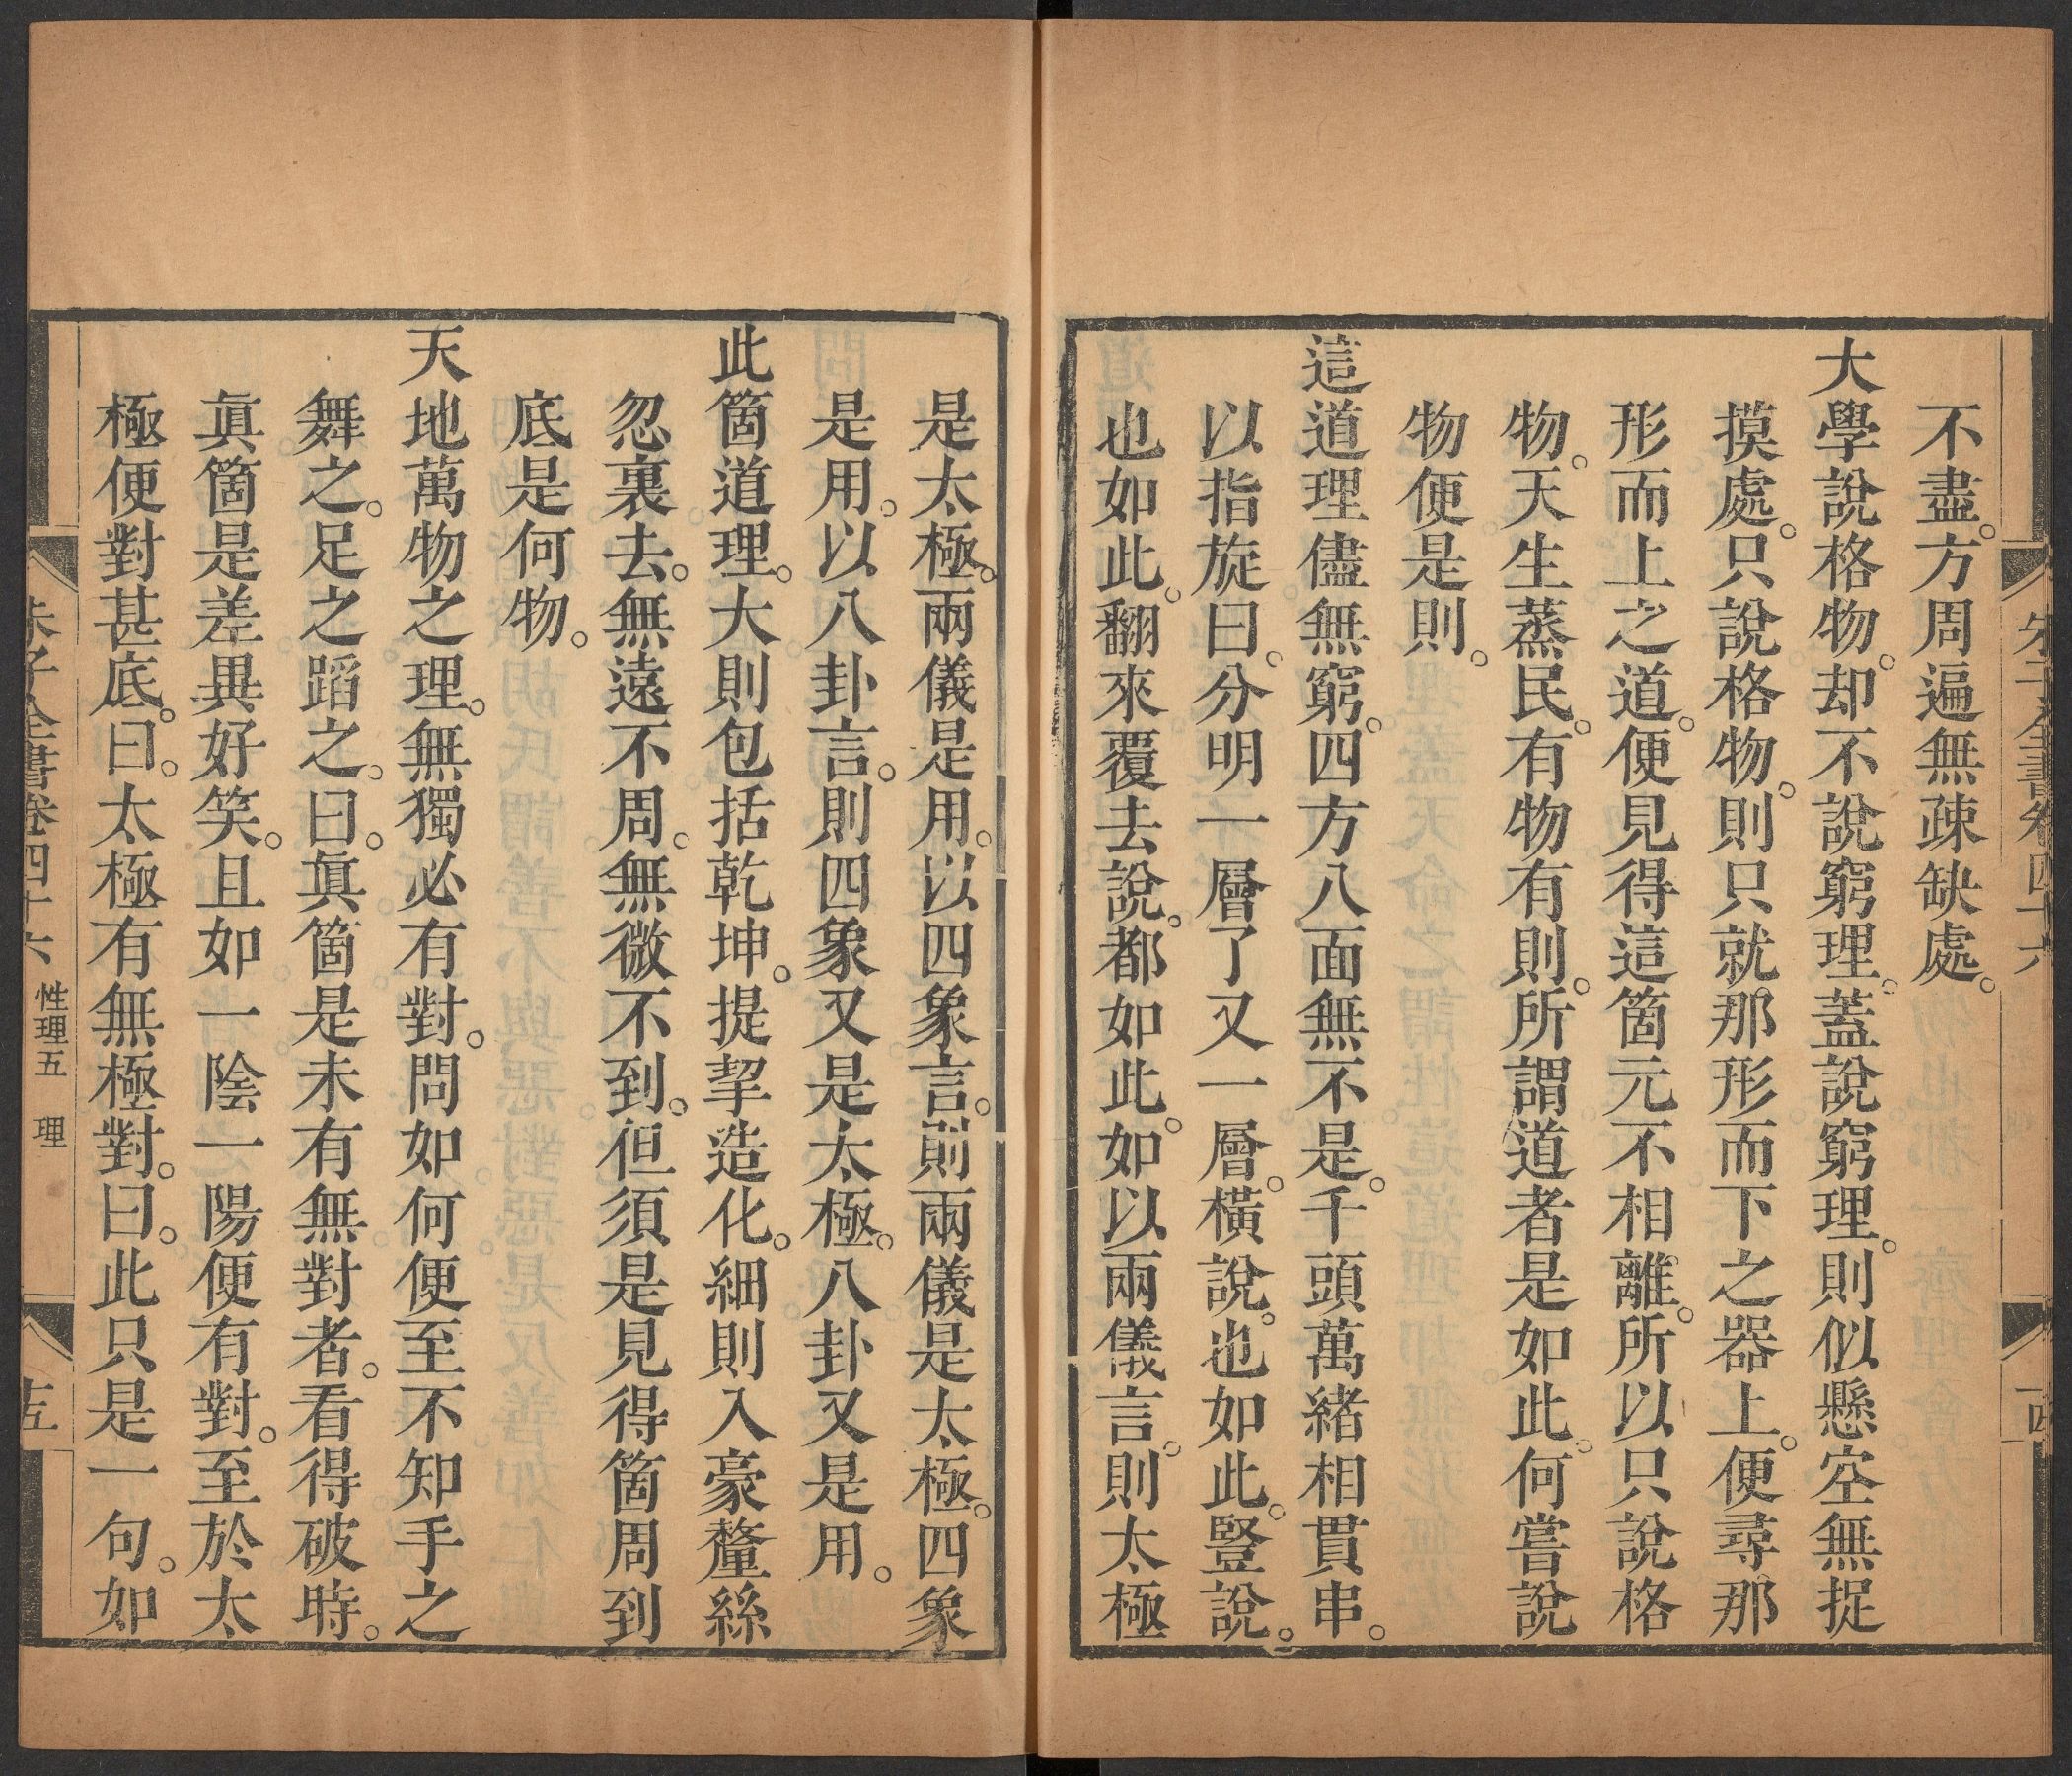 朱子全書卷四十六
十四
不盡。方周遍無疎缺處。
大學說格物。却不說窮理。蓋說窮理。則似懸空無捉
摸處。只說格物。則只就那形而下之器上。便尋那
形而上之道。便見得這箇元不相離。所以只說格
物。天生蒸民。有物有則。所謂道者是如此。何嘗說
物便是則。
這道理儘無窮。四方八面無不是。千頭萬緒相貫串。
以指旋曰。分明一層了又一層。橫說。也如此。豎說。
也如此。翻來覆去說。都如此。如以兩儀言。則太極
是太極。兩儀是用。以四象言。則兩儀是太極。四象
是用。以八卦言。則四象又是太極。八卦又是用。
此箇道理。大則包括乾坤。提挈造化。細則入豪釐絲
忽裏去。無遠不周。無微不到。但須是見得箇周到
底是何物。
天地萬物之理。無獨必有對。問如何便至不知手之
舞之。足之蹈之。曰。眞箇是未有無對者。看得破時。
眞箇是差異好笑。且如一陰一陽便有對。至於太
極便對甚底。曰。太極有無極對。曰。此只是一句。如
朱子全書卷四十六 性理五 理
十五